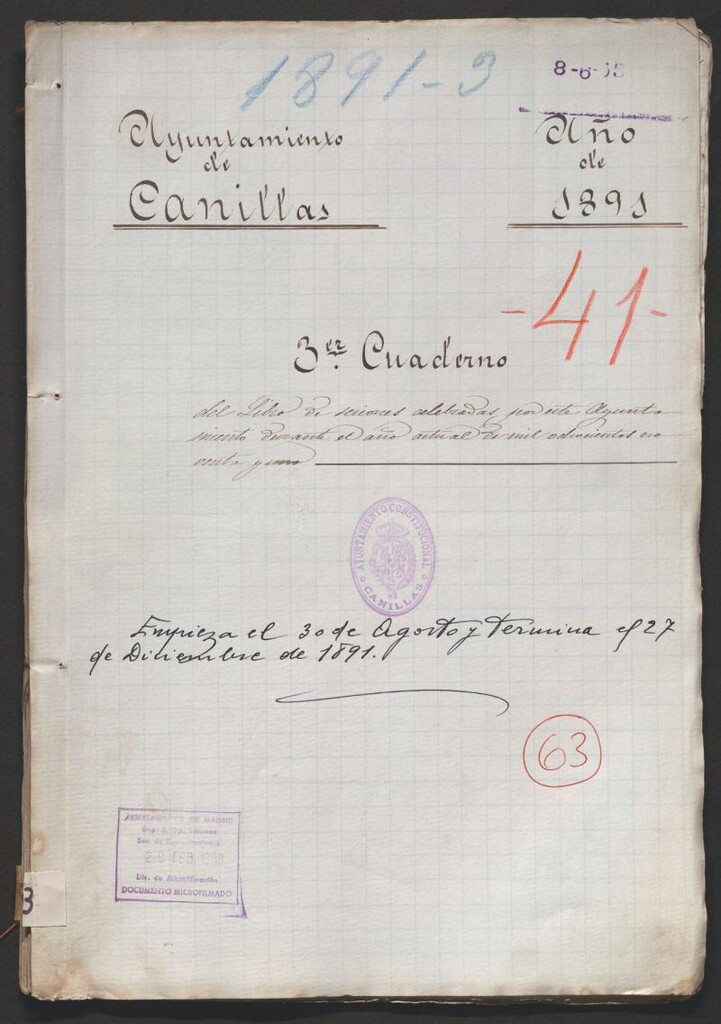 1891-3
8-6-
Ayuntamiento
de
Canillas
Año
de
1891
-41-
3er Cuaderno
del Libro de sesiones celebradas por este Ayunta-
miento durante el año actual de mil ochocientos no
venta y uno
AYUNTAMIENTO CONSTITUCIONAL
CANILLAS
Empieza el 30 de Agosto y Termina el 27
de Diciembre de 1891.
63
AYUNTAMIENTO DE MADRID
29 FEB
Div. de Microfilmación
DOCUMENTO MICROFILMADO
3